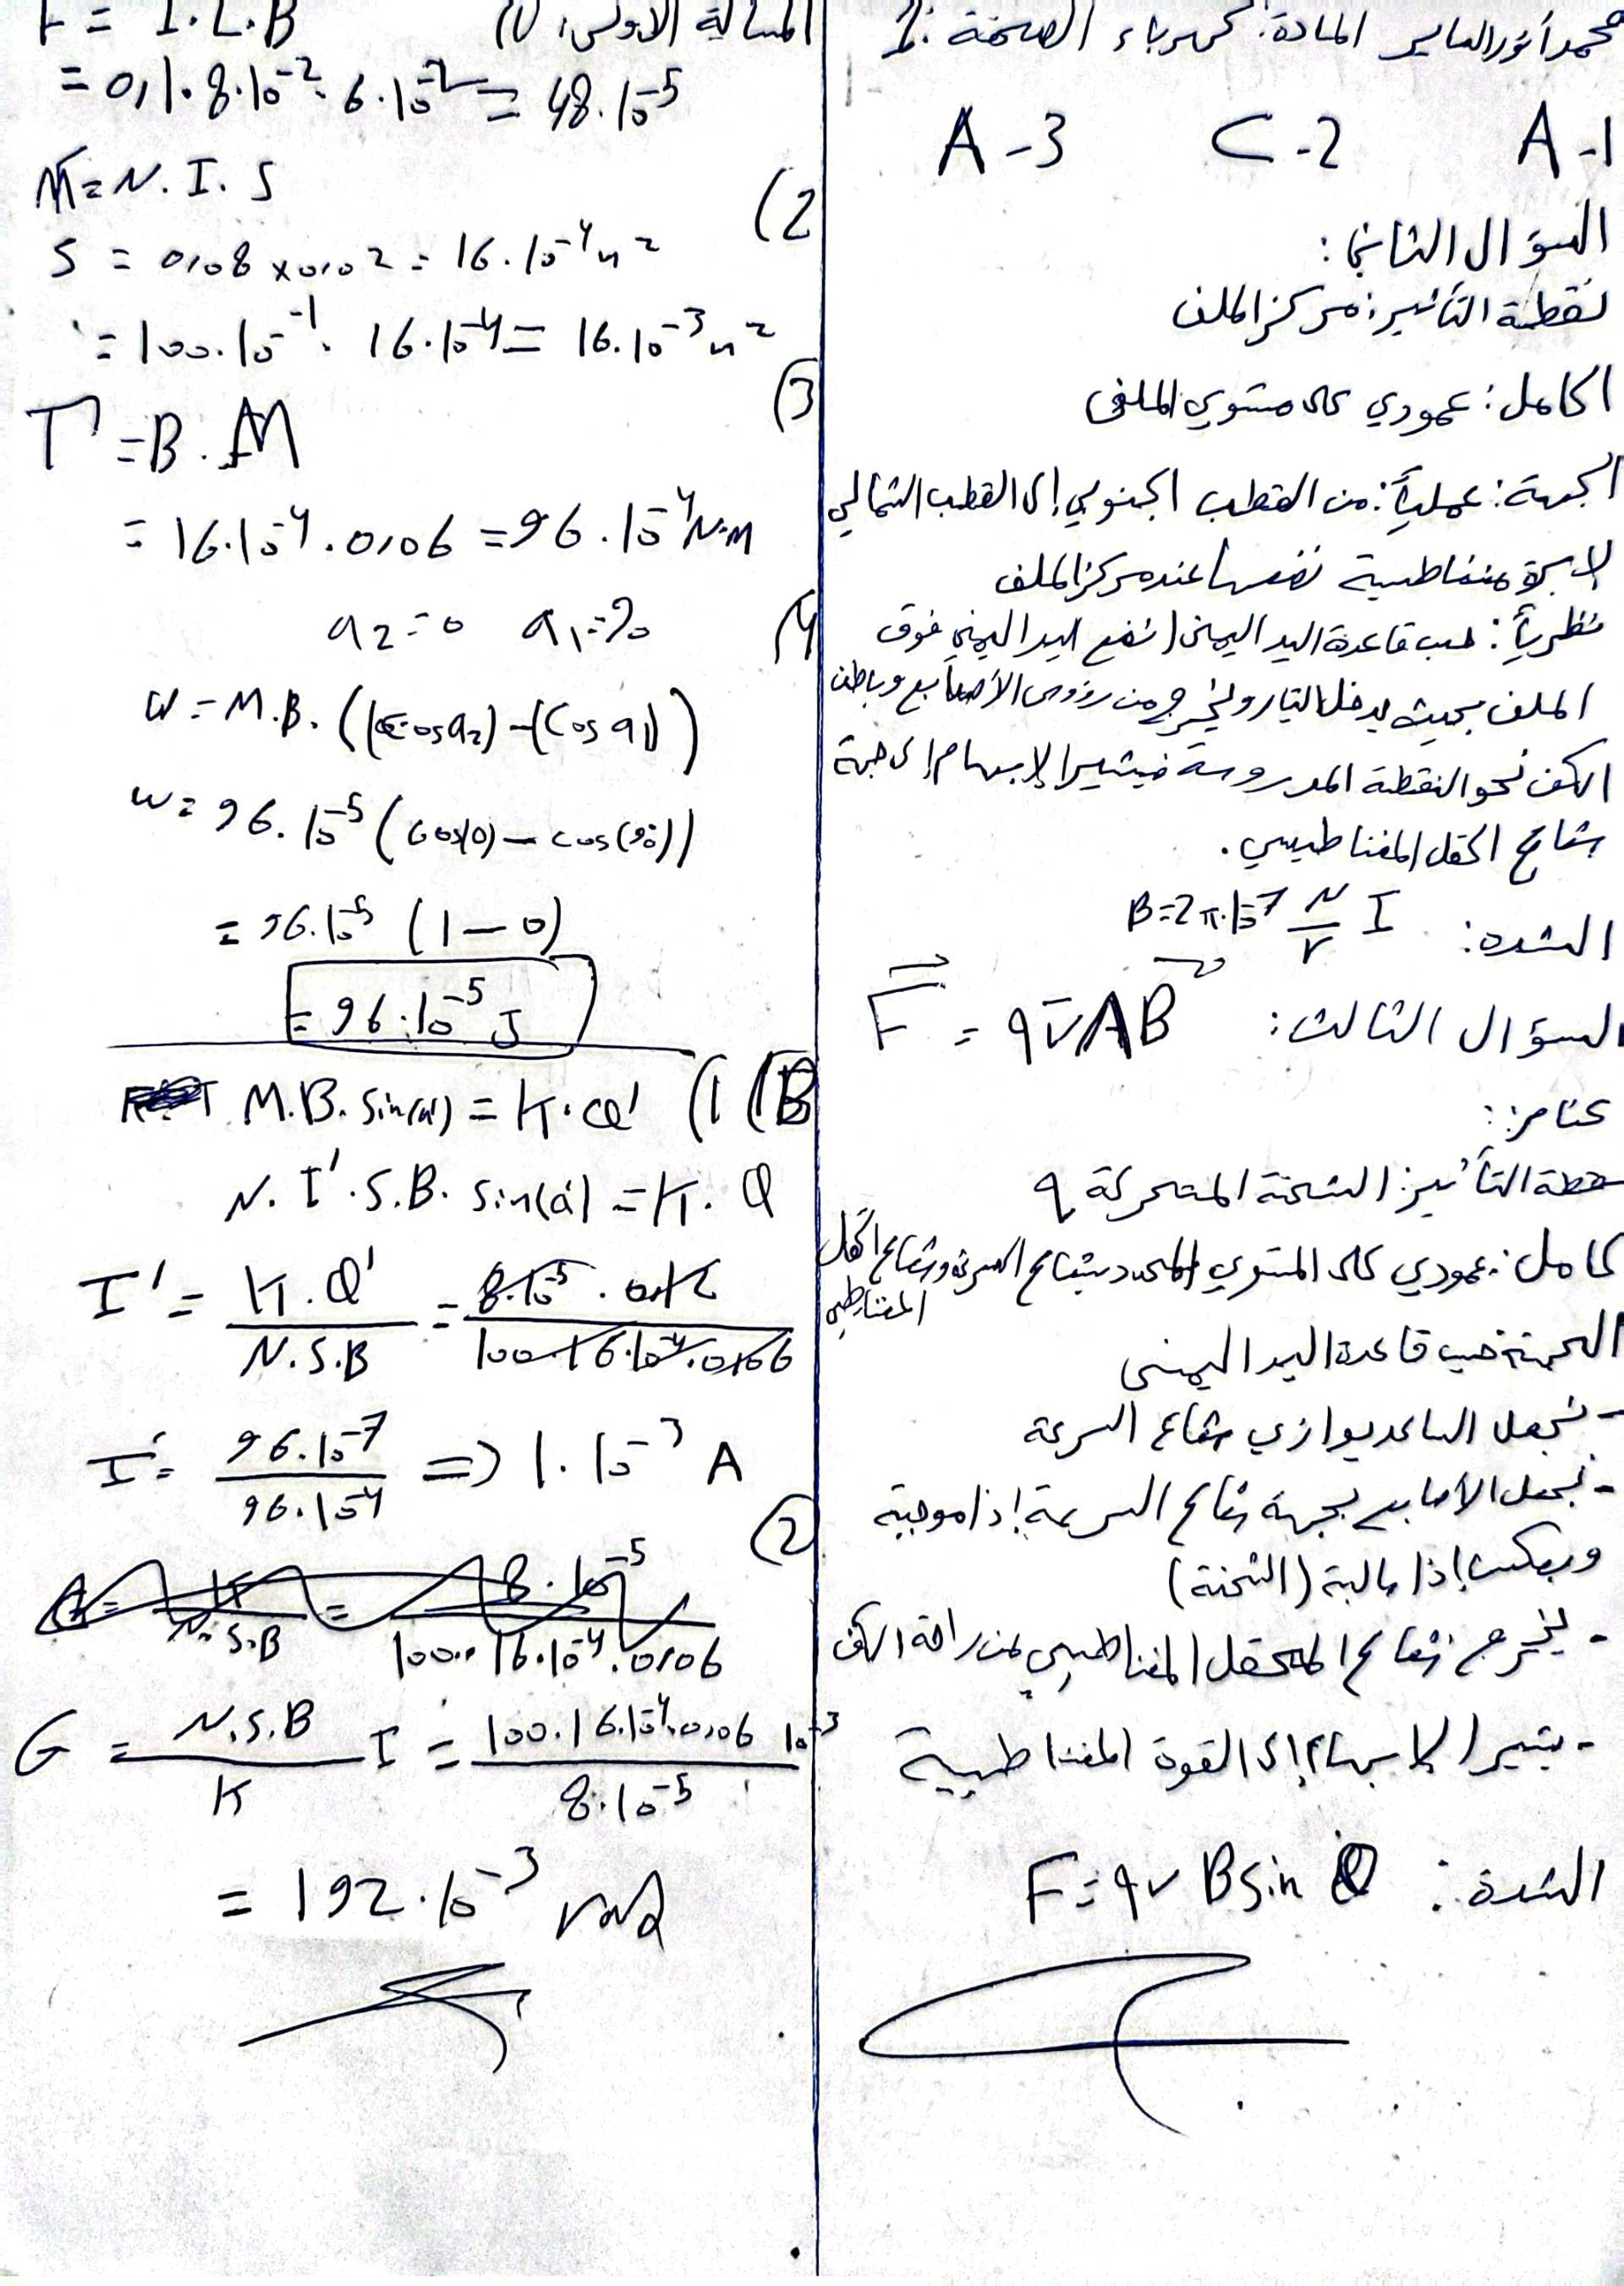 محمد أنور الساير المادة: كهرباء الصفحة: 1
A -1 C -2 A -3
السؤال الثاني:
نقطة التأثير: مركز الملف
الحامل: عمودي على مستوي الملف
الجهة: عملياً: من القطب الجنوبي إلى القطب الشمالي
لإبرة مغناطيسية نضعها عند مركز الملف
نظرياً: حسب قاعدة اليد اليمنى نضع اليد اليمنى فوق
الملف بحيث يدخل التيار ويخرج من رؤوس الأصابع وباطن
الكف نحو النقطة المدروسة فيشير الإبهام إلى جهة
شعاع الحقل المغناطيسي.
الشدة: B=2π.10^-7 N/r I
السؤال الثالث: F = qv ΛB
عناصر:
نقطة التأثير: الشحنة المتحركة q
حامل: عمودي على المستوي المحدد بشعاع السرعة وشعاع الحقل المغناطيسي
الجهة حسب قاعدة اليد اليمنى
- نجعل الساعد يوازي شعاع السرعة
- نجعل الأصابع بجهة شعاع السرعة إذا موجبة
وبعكس إذا سالبة (الشحنة)
- يخرج شعاع الحقل المغناطيسي من راحة الكف
- يشير الإبهام إلى القوة المغناطيسية
الشدة: F=qv B sin θ
المسألة الأولى: (1
F = I.L.B
= 0,1.8.10^-2.6.10^-2 = 48.10^-5
(2
M=N.I.S
S = 0,08 x 0,02 = 16.10^-4 m^2
= 100.10^-1.16.10^-4 = 16.10^-3 m^2
(3
Γ = B.M
= 16.10^-4.0,06 = 96.10^-4 N.m
(4
α2=0 α1=90
W = M.B.((cos α2)-(cos α1))
W= 96.10^-5 (cos(0) - cos(90))
= 96.10^-5 (1-0)
= 96.10^-5 J
B) (1
M.B. sin(α') = K.θ'
N.I'.S.B. sin(α') = K.θ
I' = K.θ' / N.S.B = 8.10^-5 . / 100.16.10^-4.0,06
I' = 96.10^-7 / 96.10^-4 => 1.10^-3 A
(2
G = N.S.B / K I = 100.16.10^-4.0,06 10^-3 / 8.10^-5
= 192.10^-3 rad